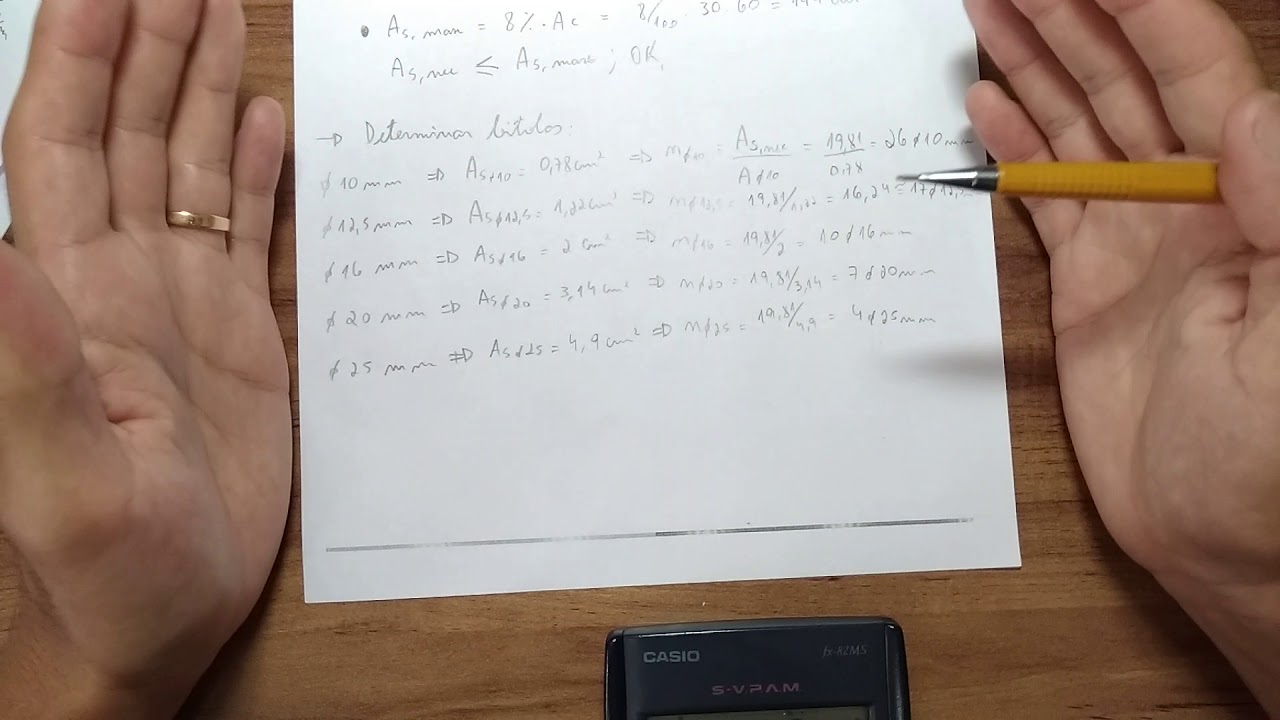 • As,max = 8%.Ac = 8/100 . 30.60 = 144 cm²
As,nec ≤ As,max ; OK.
→ Determinar bitolas:
ϕ 10 mm ⇒ Asϕ10 = 0,78cm² ⇒ nϕ10 = As,nec/Aϕ10 = 19,81/0,78 = 26ϕ10mm
ϕ12,5mm ⇒ Asϕ12,5 = 1,22cm² ⇒ nϕ12,5 = 19,81/1,22 = 16,24 ≅ 17ϕ12,5
ϕ 16 mm ⇒ Asϕ16 = 2 cm² ⇒ nϕ16 = 19,81/2 = 10ϕ16mm
ϕ 20 mm ⇒ Asϕ20 = 3,14cm² ⇒ nϕ20 = 19,81/3,14 = 7ϕ20mm
ϕ 25 mm ⇒ Asϕ25 = 4,9cm² ⇒ nϕ25 = 19,81/4,9 = 4ϕ25mm
CASIO fx-82MS
S-V.P.A.M.